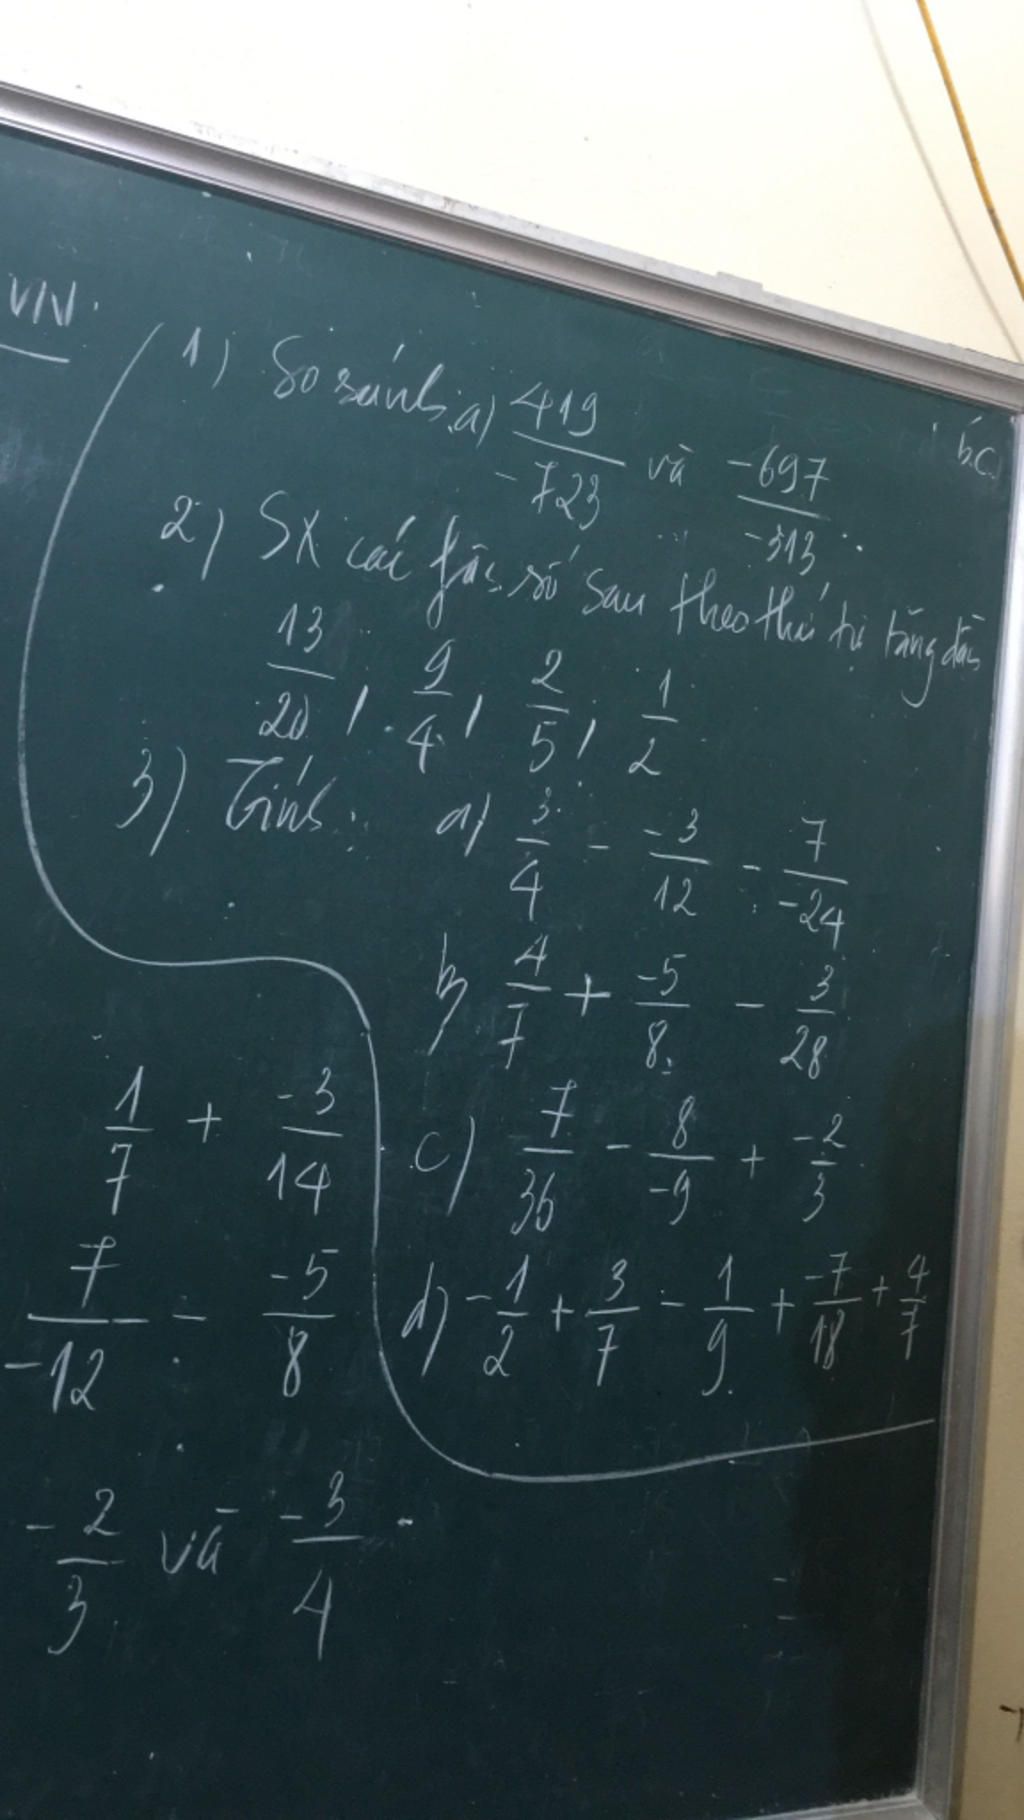 VN.
1) So sánh: a) 419/-723 và -697/-313
b, c
2) SX các fân số sau theo thứ tự tăng dần
13/20 ; 9/4 ; 2/5 ; 1/2
3) Tính: a) 3/4 - -3/12 - 7/-24
b) 4/7 + -5/8 - 3/28
c) 7/36 - 8/-9 + -2/3
d) -1/2 + 3/7 - 1/9 + -7/18 + 4/7
1/7 + -3/14
7/-12 - -5/8
-2/3 và -3/4